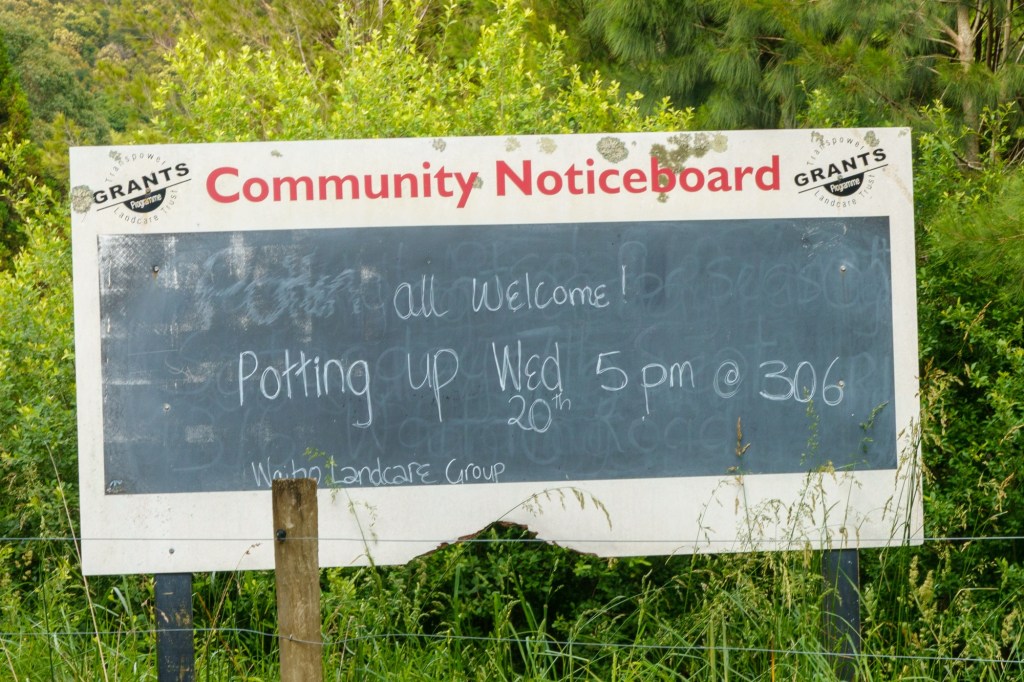 Community Noticeboard
Transpower
GRANTS
Programme
Landcare Trust
Transpower
GRANTS
Programme
Landcare Trust
all Welcome!
Potting up Wed 5pm @ 306
20th
Landcare Group